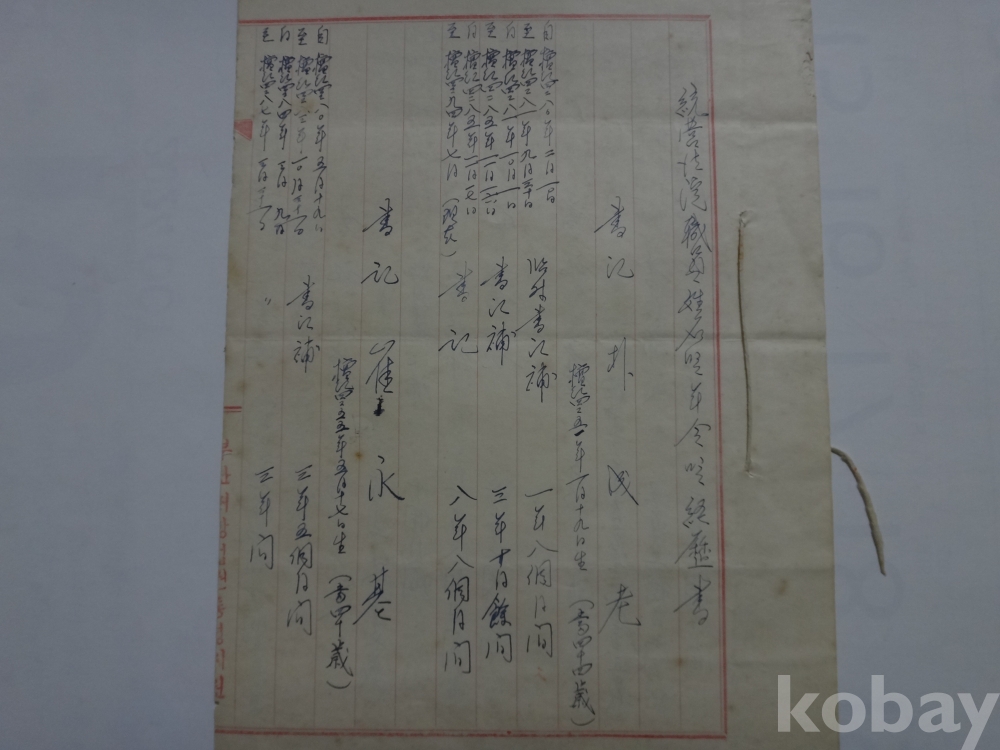 統營法院職員姓名및年令및経歷書
書記 朴 成 老
檀紀四二五一年一月十九日生 (当四十四歲)
自 檀紀四二八〇年二月一日
至 檀紀四二八一年九月三十日 臨時書記補 一年八個月間
自 檀紀四二八一年一〇月一日
至 檀紀四二八五年 書記補 三年十月餘間
自 檀紀四二八五年
至 檀紀四二九四年七月 (現在) 書記 八年八個月間
書記 崔 永 基
檀紀四二五五年五月十七日生 (当四十歲)
自 檀紀四二八〇年五月十九日
至 檀紀四二八三年一〇月 書記補 三年五個月間
自 檀紀四二八四年三月九日
至 檀紀四二八七年三月 〃 三年間
kobay